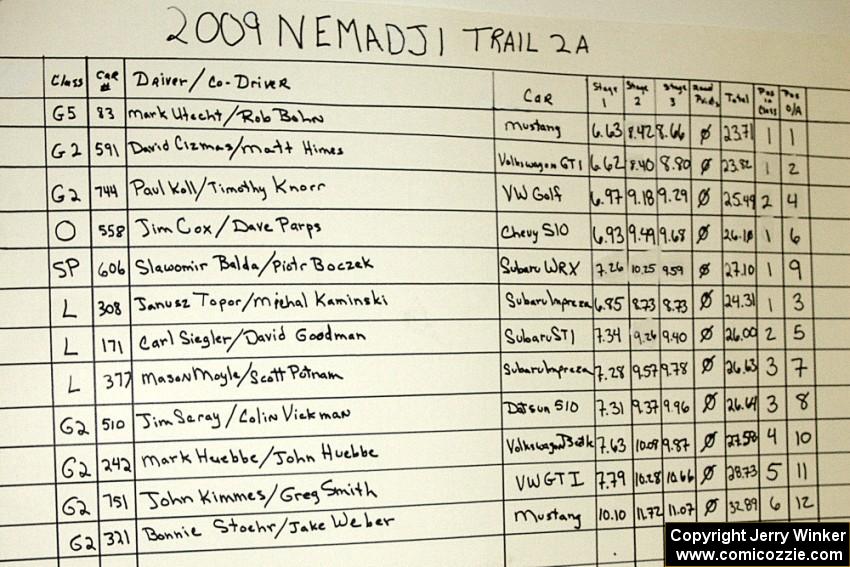 2009 NEMADJI TRAIL 2A
Class CAR # Driver/Co-Driver CAR Stage 1 Stage 2 Stage 3 Road Points Total Pos in Class Pos O/A
G5 83 Mark Utecht/Rob Bohn Mustang 6.63 8.42 8.66 Ø 23.71 1 1
G2 591 David Cizmas/Matt Himes Volkswagon GTI 6.62 8.40 8.80 Ø 23.82 1 2
G2 744 Paul Koll/Timothy Knorr VW Golf 6.97 9.18 9.29 Ø 25.44 2 4
O 558 Jim Cox/Dave Parps Chevy S10 6.93 9.49 9.68 Ø 26.10 1 6
SP 606 Slawomir Balda/Piotr Boczek Subaru WRX 7.26 10.25 9.59 Ø 27.10 1 9
L 308 Janusz Topor/Michal Kaminski Subaru Impreza 6.85 8.73 8.73 Ø 24.31 1 3
L 171 Carl Siegler/David Goodman Subaru STI 7.34 9.26 9.40 Ø 26.00 2 5
L 377 Mason Moyle/Scott Putnam Subaru Impreza 7.28 9.57 9.78 Ø 26.63 3 7
G2 510 Jim Scray/Colin Vickman Datsun 510 7.31 9.37 9.96 Ø 26.64 3 8
G2 242 Mark Huebbe/John Huebbe Volkswagon 7.63 10.08 9.87 Ø 27.58 4 10
G2 751 John Kimmes/Greg Smith VW GTI 7.79 10.28 10.66 Ø 28.73 5 11
G2 321 Bonnie Stoehr/Jake Weber Mustang 10.10 11.72 11.07 Ø 32.89 6 12
Copyright Jerry Winker
www.comicozzie.com